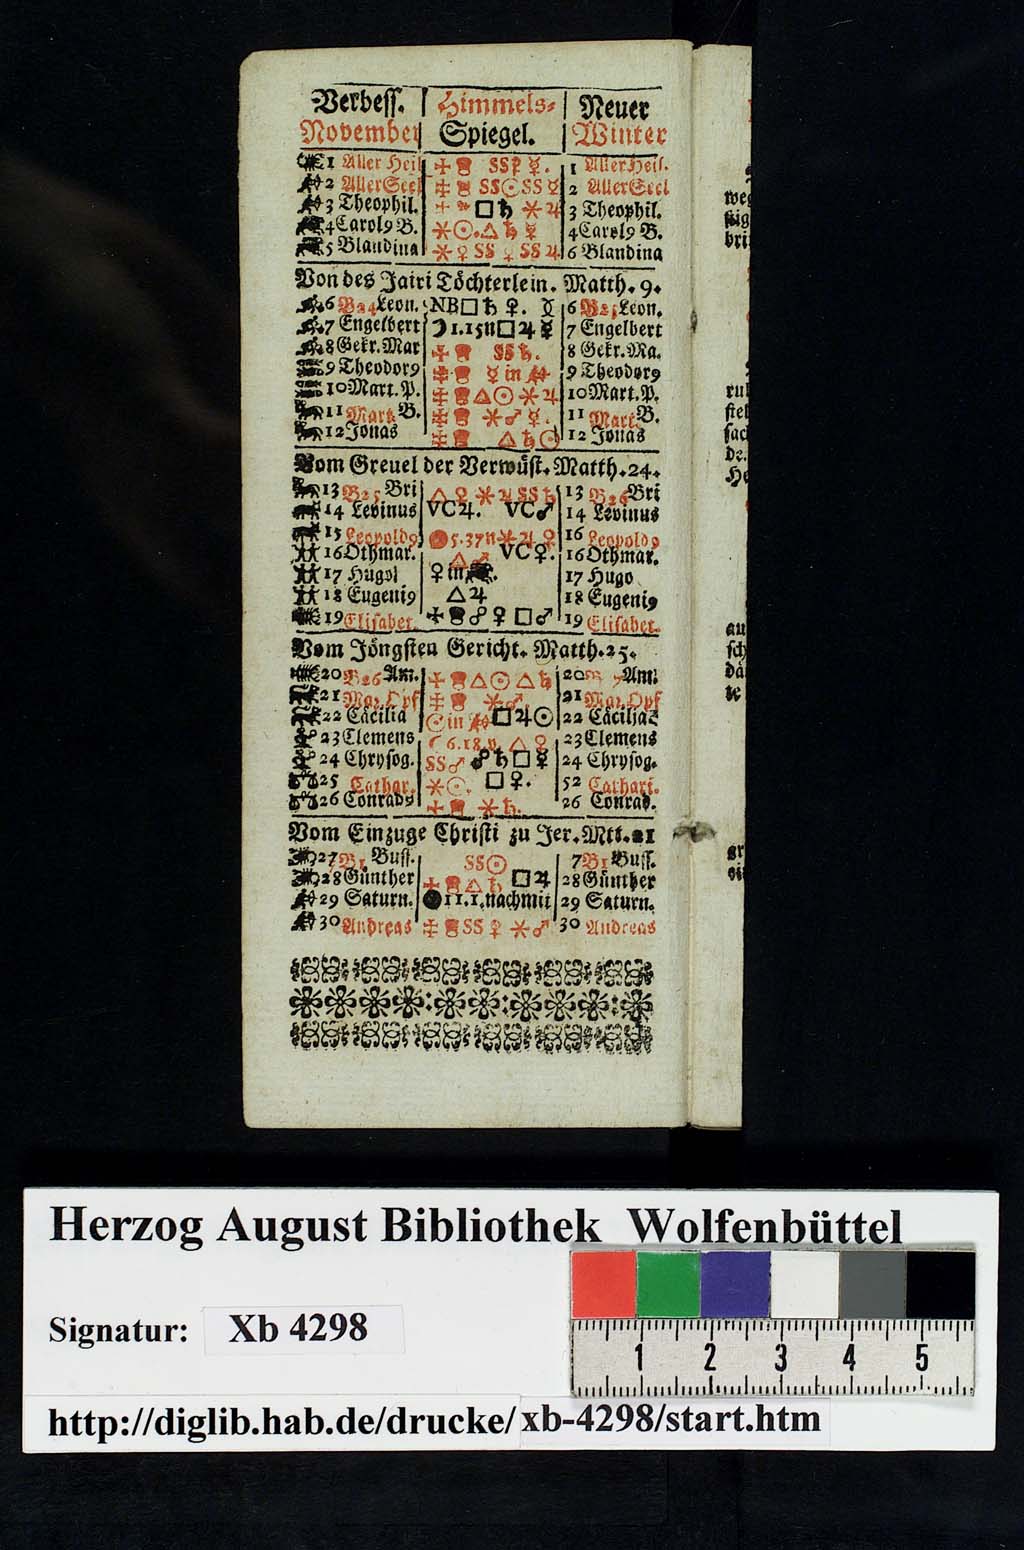 Verbess. Himmels- Neuer
November Spiegel. Winter
1 Aller Heil ☩ SS ☿. 1 AllerHeil.
2 AllerSeel ☩ SS☉SS☿ 2 AllerSeel
3 Theophil. □♄ ⚹♃ 3 Theophil.
4Carol9 B. ⚹☉.△♄☿ 4Carol9 B.
5 Blandina ⚹♀SS SS♃ 6 Blandina
Von des Jairi Töchterlein. Matth. 9.
6 B24Leon. NB□♄♀. 6 Leon.
7 Engelbert ☽1.15n□♃☿ 7 Engelbert
8Gekr.Mar ☩ SS♄. 8 Gekr.Ma.
9Theodor9 ☩ ☿in 9 Theodor9
10Mart.P. ☩ △☉⚹♃ 10Mart.P.
11Mart B. ☩ ⚹♂☿. 11 Mart.B.
12Jonas ☩ △♄☉ 12 Jonas
Vom Greuel der Verwüst. Matth.24.
13 B25 Bri △♀⚹♃SS♄ 13 B26Bri
14 Levinus VC♃. VC♂ 14 Levinus
15 Leopold9 5.37n⚹♃♀ 16 Leopold9
16Othmar. △♂ VC♀. 16Othmar.
17 Hugo ♀in 17 Hugo
18 Eugeni9 △♃ 18 Eugeni9
19Elisabet. ☩ ☍♀□♂ 19 Elisabet.
Vom Jöngsten Gericht. Matth.25.
20B26 Am. ☩ △☉△♄ 20 Am
21Mar.Opf ☩ ⚹♂. 21 Mar.Opf
22 Cäcilia ☉in □♃☉ 22 Cäcilia
23Clemens ☾6.18.v. △♀ 23Clemens
24 Chrysog. SS♂ ☍♄□☿ 24 Chrysog.
25 Cathar. ⚹☉. □♀. 52 Cathari.
26 Conrad9 ☩ ⚹♄. 26 Conrad.
Vom Einzuge Christi zu Jer. Mtt.21
27B1 Buss. SS☉ 7B1Buss.
28Günther ☩ △♄ □♃ 28Günther
29 Saturn. 11.1.nachmit 29 Saturn.
30Andreas ☩ SS♀⚹♂ 30 Andreas
weg
bri
Herzog August Bibliothek Wolfenbüttel
Signatur: Xb 4298
1 2 3 4 5
http://diglib.hab.de/drucke/xb-4298/start.htm